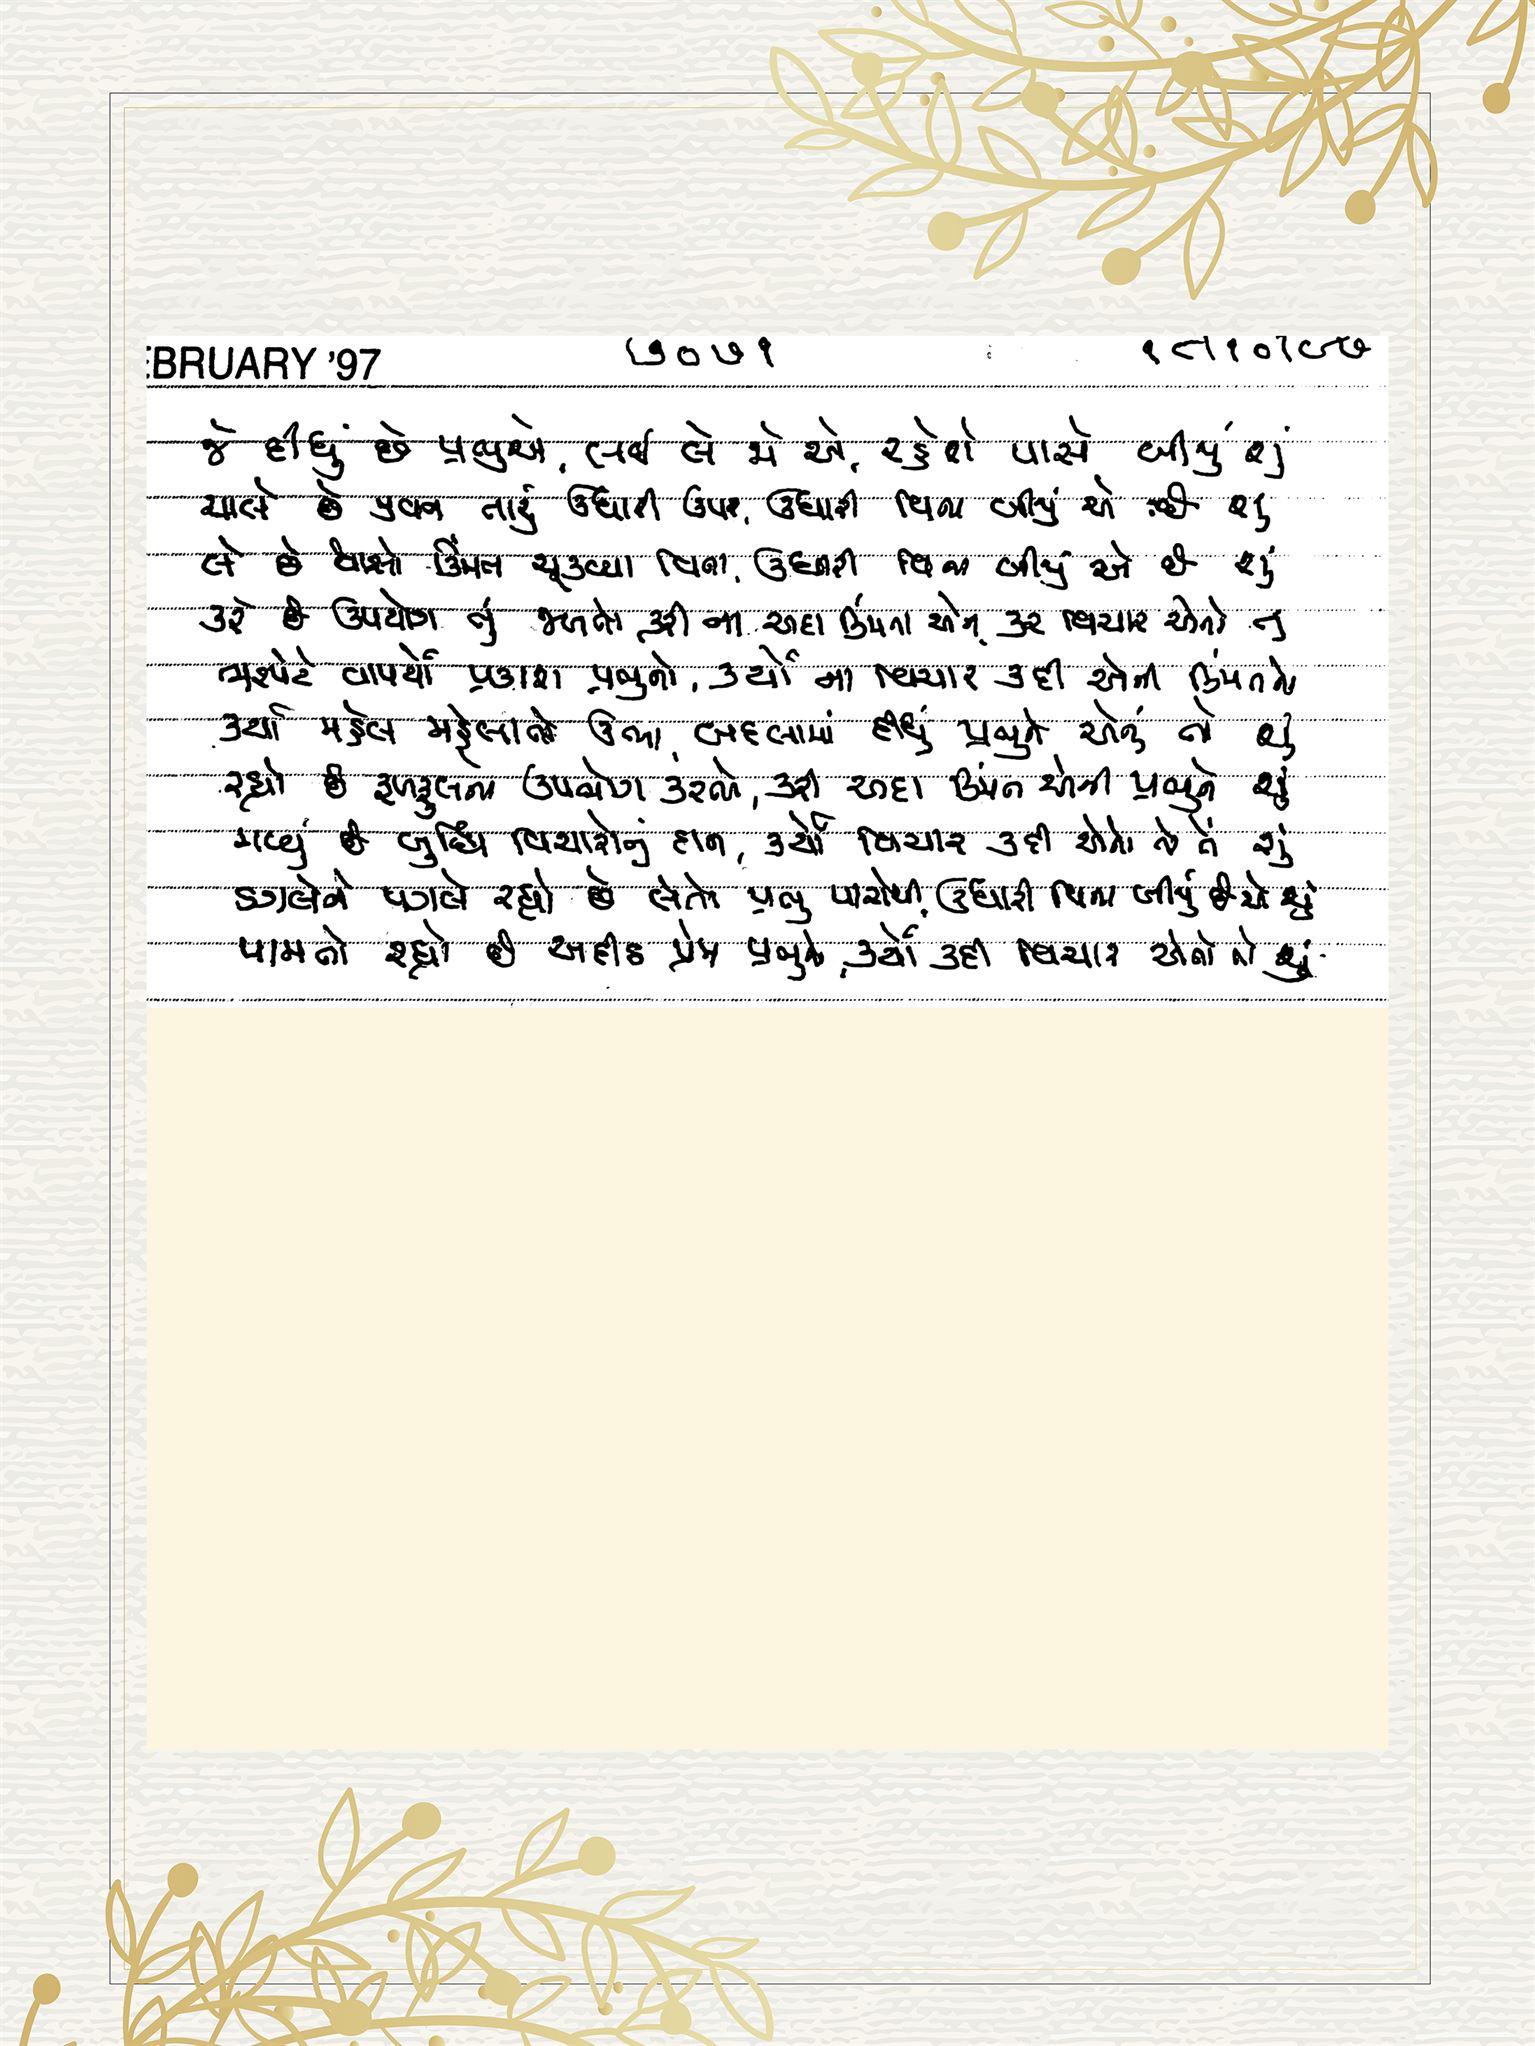 EBRUARY '97 ૭૦૭૧ ૧૮।૧૦।૯૭
જે દીધું છે પ્રભુએ, લઈ લે જો એ, રહેશે પાસે બીજું શું
ચાલે છે જીવન તારું ઉધારી ઉપર, ઉધારી વિના બીજું એ છે શું
લે છે શ્વાસો કિંમત ચૂકવ્યા વિના, ઉધારી વિના બીજું એ છે શું
કરે છે ઉપયોગ તું જળનો, કરી ના અદા કિંમત એની, કર વિચાર એનો તું
વાપર્યો પ્રકાશ પ્રભુનો, કર્યો ના વિચાર કદી એની કિંમતનો
કર્યા મહેલ મહેલાતો ઉભા, બદલામાં દીધું પ્રભુને એનું તો શું
રહ્યો છે ફળફુલનો ઉપયોગ કરતો, કરી અદા કિંમત એની પ્રભુને શું
મળ્યું છે બુદ્ધિ વિચારોનું દાન, કર્યો વિચાર કદી એનો તો તેં શું
ડગલેને પગલે રહ્યો છે લેતો પ્રભુ પાસેથી, ઉધારી વિના બીજું છે એ શું
પામતો રહ્યો છે અહીં પ્રેમ પ્રભુનો, કર્યો કદી વિચાર એનો તો શું